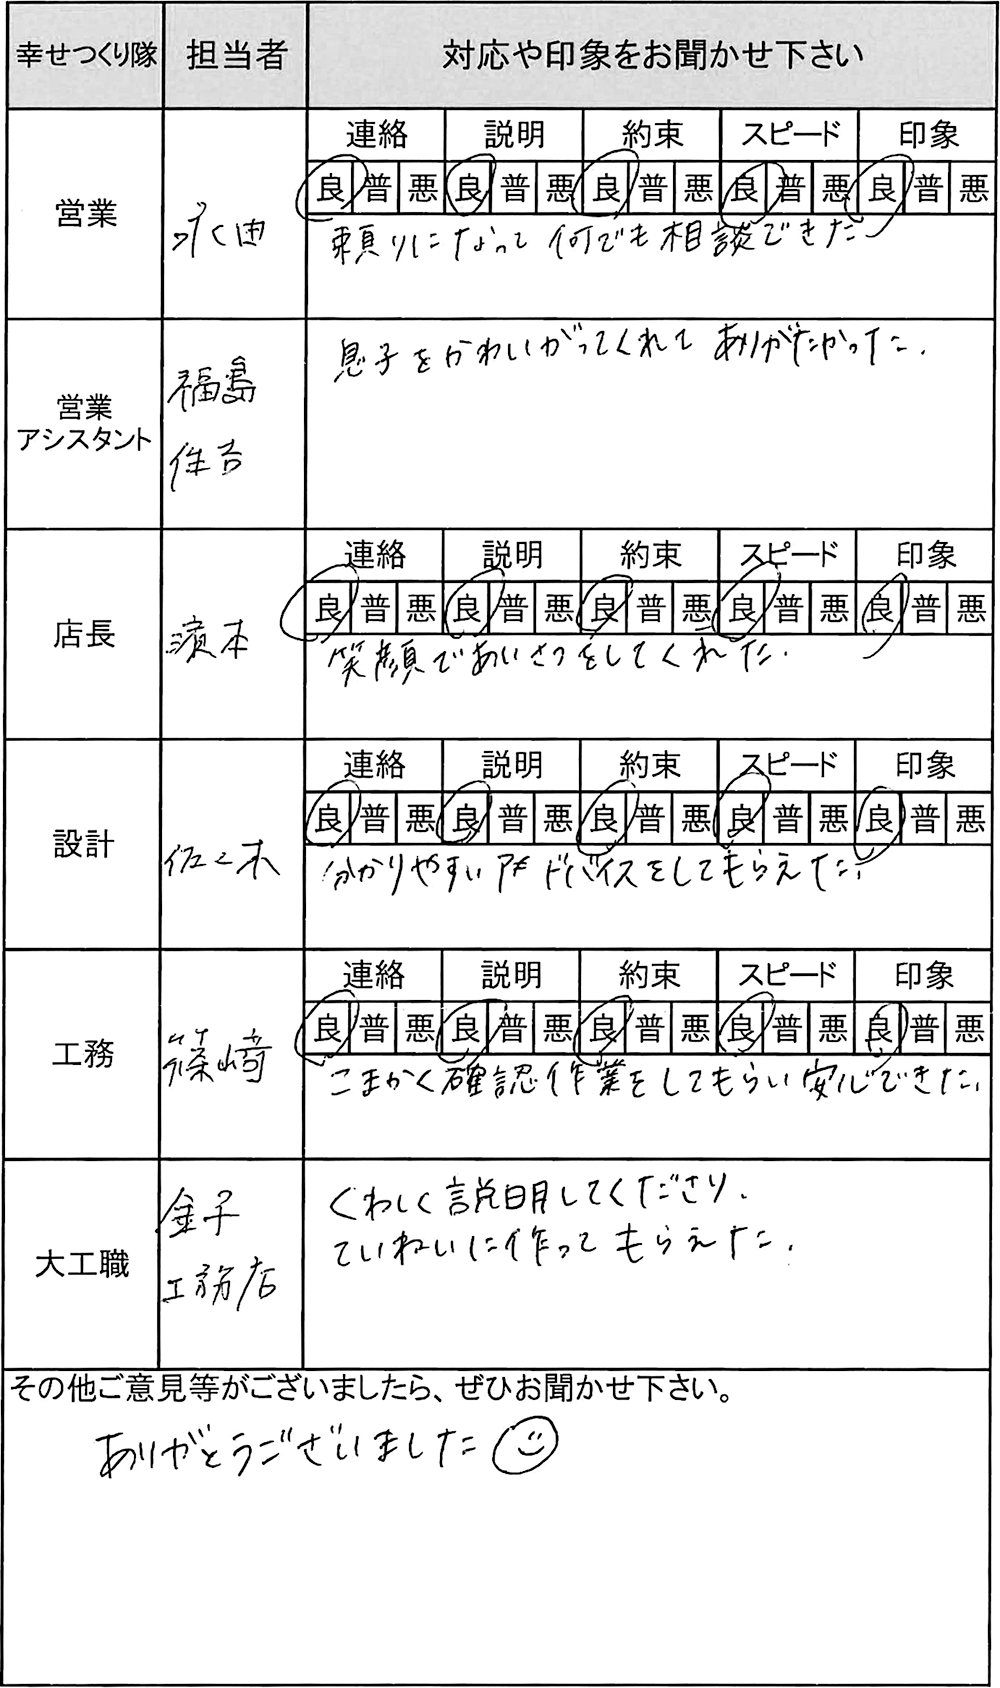 幸せつくり隊 担当者 対応や印象をお聞かせ下さい
連絡 説明 約束 スピード 印象
良 普 悪 良 普 悪 良 普 悪 良 普 悪 良 普 悪
営業
頼りになって何でも相談できた
営業
アシスタント
福島
住吉
息子をかわいがってくれてありがたかった.
連絡 説明 約束 スピード 印象
良 普 悪 良 普 悪 良 普 悪 良 普 悪 良 普 悪
店長 濱本
笑顔であいさつをしてくれた.
連絡 説明 約束 スピード 印象
良 普 悪 良 普 悪 良 普 悪 良 普 悪 良 普 悪
設計 佐々木
分かりやすいアドバイスをしてもらえた.
連絡 説明 約束 スピード 印象
良 普 悪 良 普 悪 良 普 悪 良 普 悪 良 普 悪
工務 篠﨑
こまかく確認作業をしてもらい安心できた.
大工職
金子
工務店
くわしく説明してくださり.
ていねいに作ってもらえた.
その他ご意見等がございましたら、ぜひお聞かせ下さい。
ありがとうございました